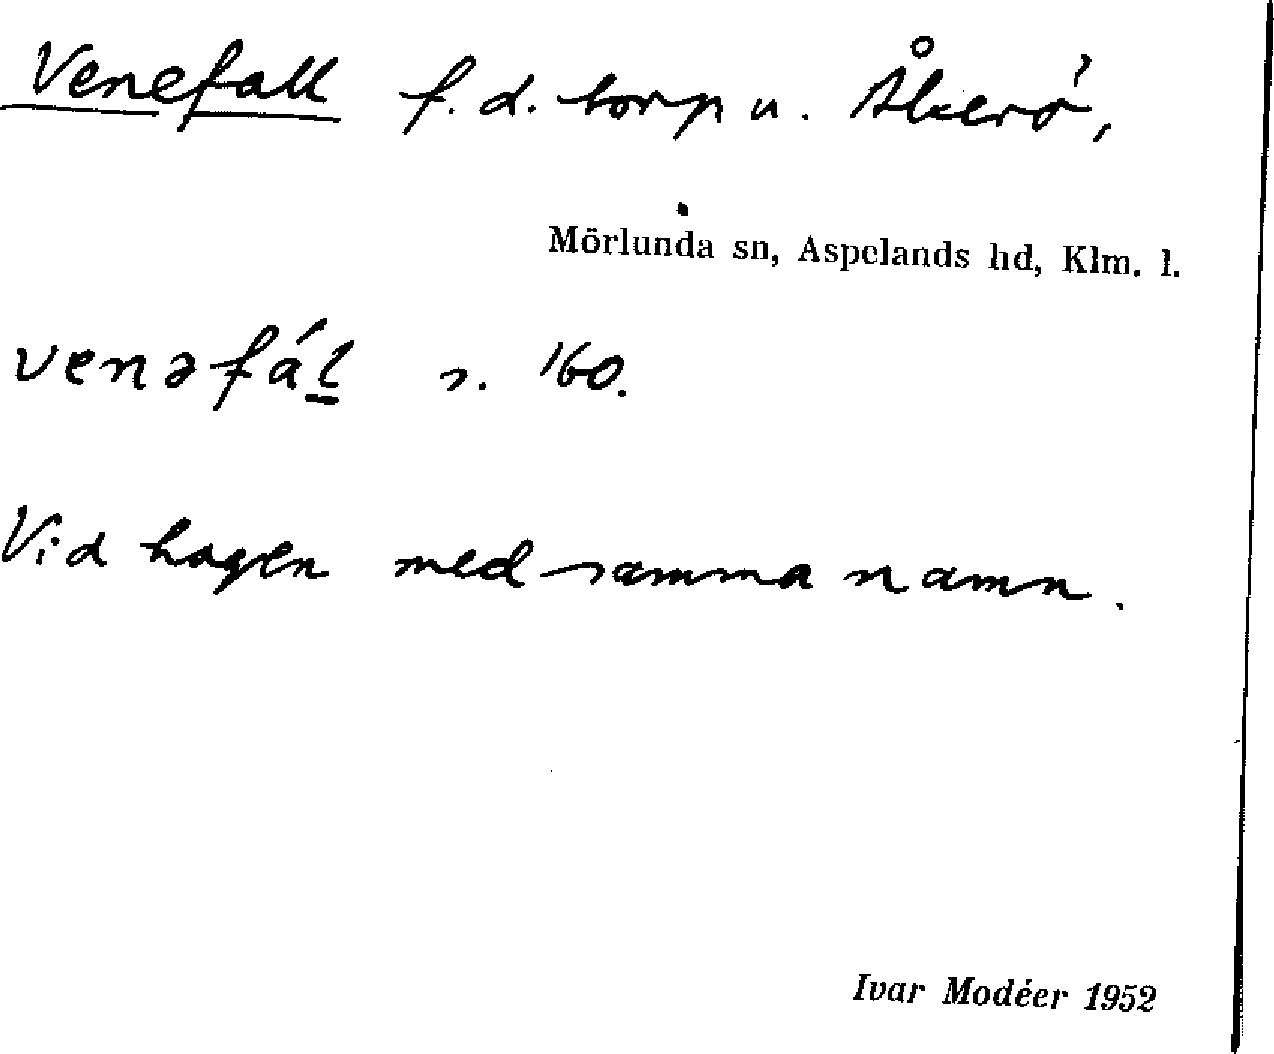 Venefall f.d. torp u. Åkerö,
Mörlunda sn, Aspelands hd, Klm. l.
venəfál̲ s. 160.
Vid hagen med samma namn.
Ivar Modéer 1952